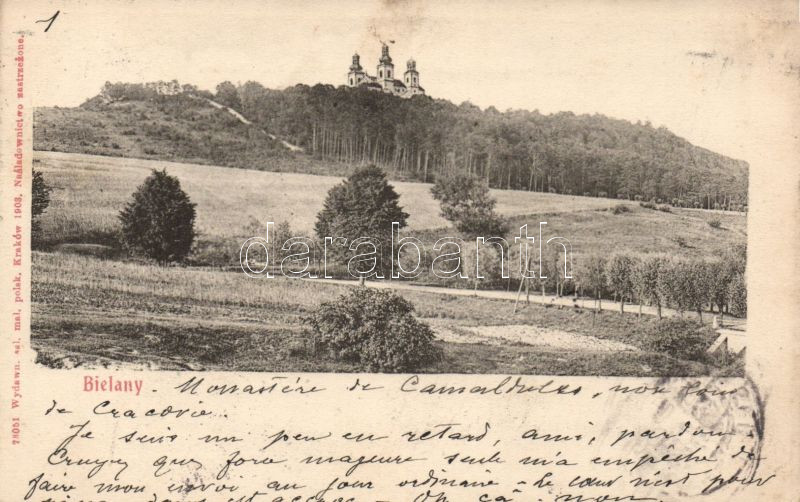 1
78051 Wydawn. sal. mal. polsk. Kraków 1903. Naśladownictwo zastrzeżone.
darabanth
Bielany
Monastère de Camaldules, non loin
de Cracovie.
Je suis un peu en retard, ami, pardon.
Croyez que force majeure seule m'a empêché de
faire mon envoi au jour ordinaire - Le cœur n'est pour